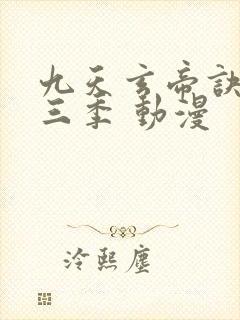 九天玄帝訣
三季 動漫
冷熙塵